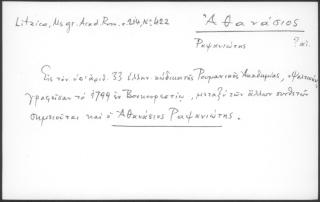 Litzica, Ms gr. Acad. Rom. σ. 214, Νο 422
Ἀθανάσιος
Ραφανιώτης
αἰ.
Εἰς τὸν ὑπ' ἀριθ. 33 ἑλλην. κώδικα τῆς Ρουμανικῆς Ἀκαδημίας,
γραφεῖσαν τὸ 1799 ἐν Βουκουρεστίῳ, μεταξὺ τῶν ἄλλων συνθετῶν
σημειοῦται καὶ ὁ Ἀθανάσιος Ραφανιώτης.